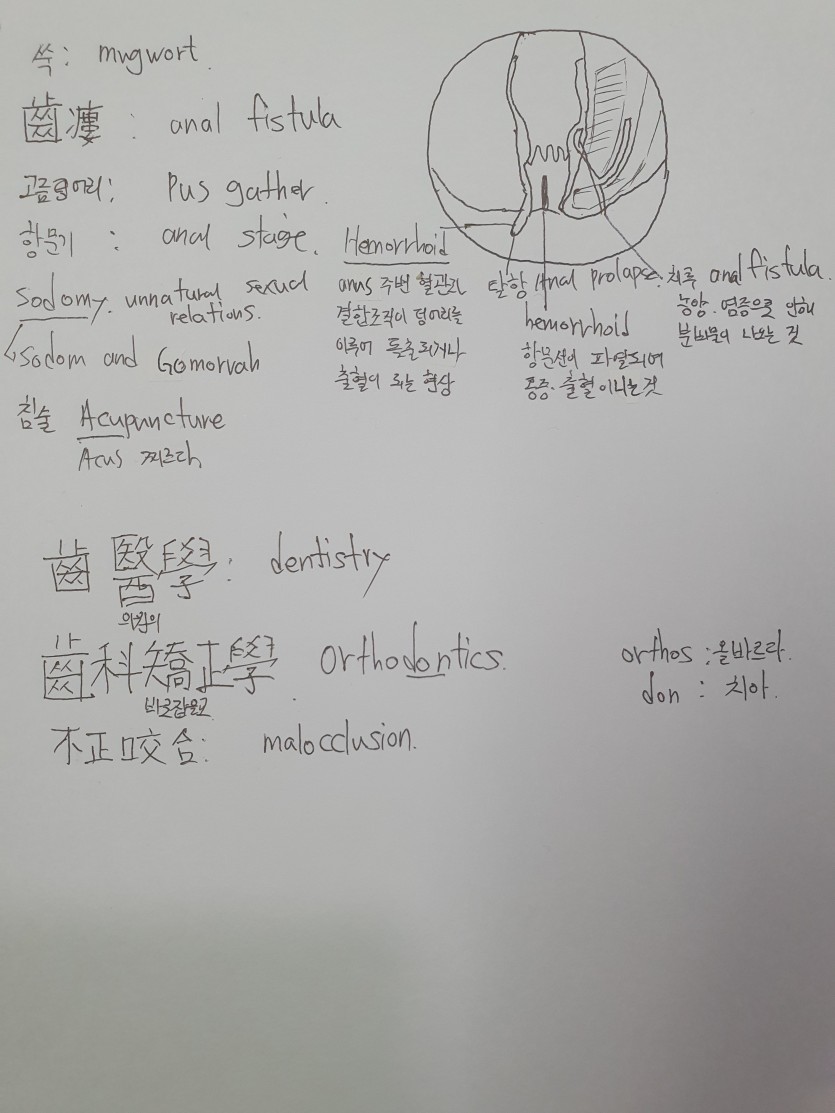 쑥: mugwort.
齒瘻: anal fistula
고름덩어리: Pus gather.
항문기: anal stage.
Sodomy. unnatural sexual
relations.
Sodom and Gomorrah
침술 Acupuncture
Acus 찌르다
Hemorrhoid
anus 주변 혈관과
결합조직이 덩어리를
이루어 돌출되거나
출혈이 되는 현상
탈항 Anal prolapse.
hemorrhoid
항문선이 파열되어
통증. 출혈이 나는 것
치루 anal fistula.
농양. 염증으로 인해
분비물이 나오는 것
齒 醫學: dentistry
의원의
齒科矯正學. Orthodontics.
바로잡을교
orthos: 올바르다.
don: 치아.
不正咬合: malocclusion.